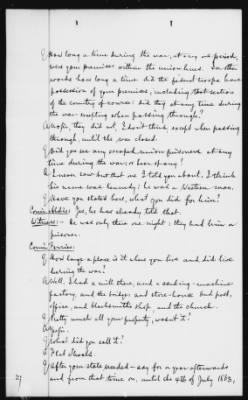 Q How long a time during the war, at any one period,
were your premises within the union lines. In other
words how long a time did the federal troops have
possession of your premises, including that section
of the country of course: did they at any time during
the war except when passing through?
A No sir, they did not, I don't think, except when passing
through, until the war closed.
Q Did you see any escaped union prisoners at any
time during the war; or hear of any?
A I never saw but that one I told you about. I think
his name was Kennedy; he was a Western man.
Q Have you stated here, what you did for him?
Com'r Aldis: Yes, he has already told that.
Witness:- He was only there one night; they had him a
prisoner.
Com'r Ferriss:
Q How large a place is it where you live and did live
during the war?
A Well, I had a mill there, and a
factory, and the bridge and store-house and post-
office, and blacksmith's shop, and the church.
Q Pretty much all your property, wasn't it?
A Yes sir.
Q What did you call it?
A Flat Shoals.
Q After your state seceded - say for a year afterwards
and from that time on, until the 4th of July 1863,
27